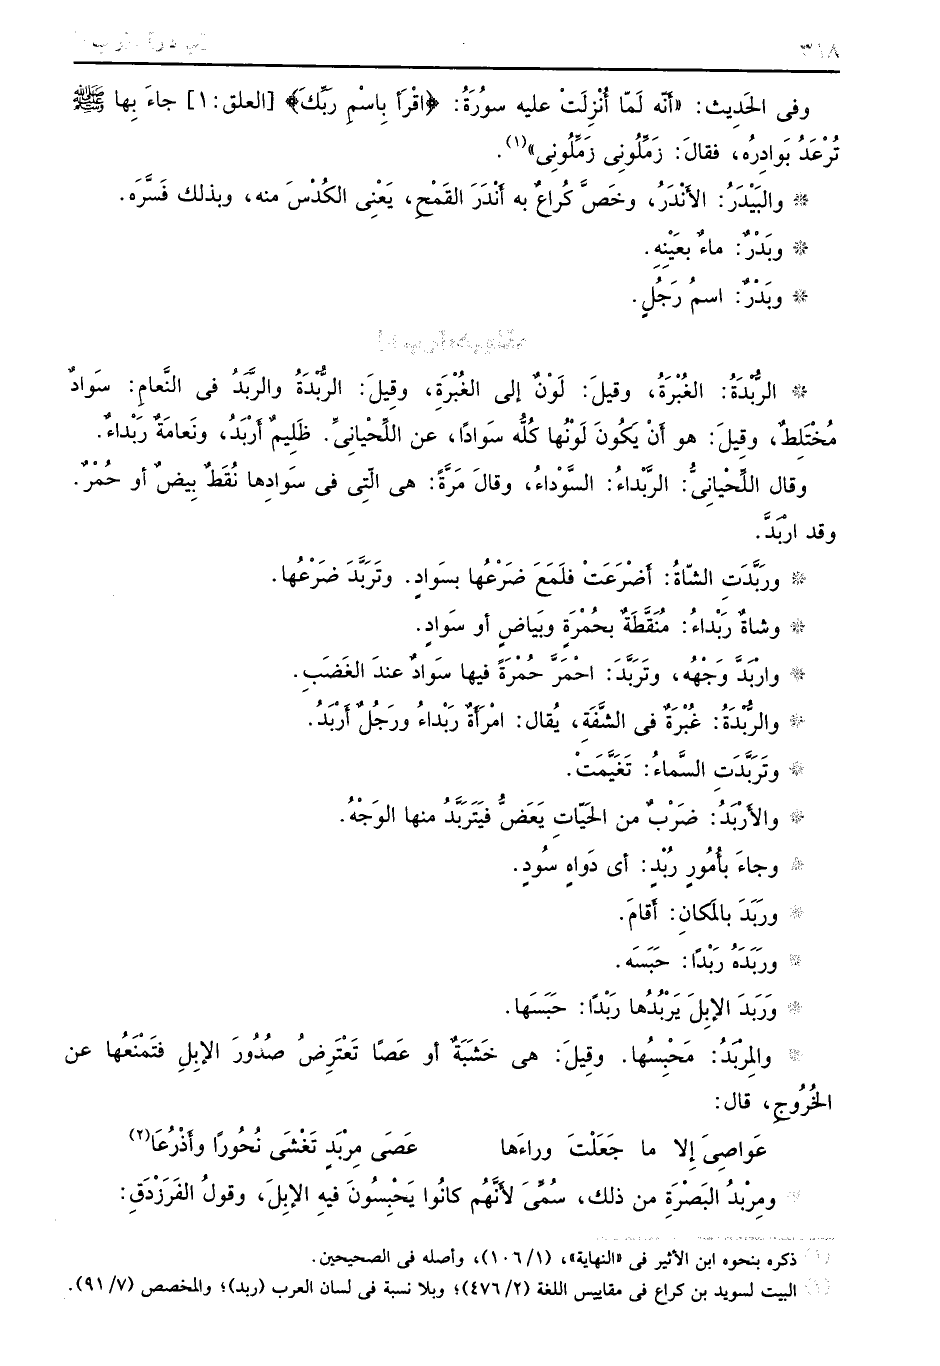 ٣١٨
وفى الحَدِيث: «أنّه لَمّا أُنْزِلَتْ عليه سورُةُ: ﴿اقْرَأ بِاسْمِ رَبِّكَ﴾ [العلق: ١] جاءَ بِها ﷺ
تُرْعَدُ بَوادِرُه، فقالَ: زَمِّلُونِى زَمِّلُونِى»(١).
* والبَيْدَرُ: الأنْدَرُ، وخَصَّ كُراعٌ به أنْدَرَ القَمْحِ، يَعْنِى الكُدْسَ منه، وبذلك فَسَّرَه.
* وبَدْرٌ: ماءٌ بعَيْنِهِ.
* وبَدْرٌ: اسمُ رَجُلٍ.
* الرُّبْدَةُ: الغُبْرَةُ، وقيلَ: لَوْنٌ إلى الغُبْرَةِ، وقيلَ: الرُّبْدَةُ والرَّبَدُ فى النَّعامِ: سَوادٌ
مُخْتَلِطٌ، وقيلَ: هو أنْ يَكُونَ لَوْنُها كُلُّه سَوادًا، عن اللِّحْيانِىِّ. ظَلِيمٌ أرْبَدُ، ونَعامَةٌ رَبْداءُ.
وقال اللِّحْيانِىُّ: الرَّبْداءُ: السَّوْداءُ، وقالَ مَرَّةً: هى الّتِى فى سَوادِها نُقَطٌ بِيضٌ أو حُمْرٌ.
وقد ارْبَدَّ.
* ورَبَّدَتِ الشّاةُ: أضْرَعَتْ فلَمَعَ ضَرْعُها بسَوادٍ. وتَرَبَّدَ ضَرْعُها.
* وشاةٌ رَبْداءُ: مُنَقَّطَةٌ بحُمْرَةٍ وبَياضٍ أو سَوادٍ.
* وارْبَدَّ وَجْهُه، وتَرَبَّدَ: احْمَرَّ حُمْرَةً فيها سَوادٌ عندَ الغَضَبِ.
* والرُّبْدَةُ: غُبْرَةٌ فى الشَّفَةِ، يُقال: امْرَأةٌ رَبْداءُ ورَجُلٌ أرْبَدُ.
* وتَرَبَّدَتِ السَّماءُ: تَغَيَّمَتْ.
* والأرْبَدُ: ضَرْبٌ من الحَيّاتِ يَعَضُّ فيَتَرَبَّدُ منها الوَجْهُ.
* وجاءَ بأُمُورٍ رُبْدٍ: أى دَواهٍ سُودٍ.
* ورَبَدَ بالمَكانِ: أقامَ.
* ورَبَدَهُ رَبْدًا: حَبَسَه.
* وَرَبَدَ الإبِلَ يَرْبُدُها رَبْدًا: حَبَسَها.
* والمِرْبَدُ: مَحْبِسُها. وقِيلَ: هى خَشَبَةٌ أو عَصًا تَعْتَرِضُ صُدُورَ الإبِلِ فتَمْنَعُها عن
الخُرُوجِ، قال:
عَواصِىَ إلا ما جَعَلْتَ وراءَها عَصَى مِرْبَدٍ تَغْشَى نُحُورًا وأذْرُعَا(٢)
* ومِرْبَدُ البَصْرَةِ من ذلك، سُمِّىَ لأنَّهُم كانُوا يَحْبِسُونَ فيه الإبِلَ، وقولُ الفَرَزْدَقِ:
(١) ذكره بنحوه ابن الأثير فى «النهاية»، (١٠٦/١)، وأصله فى الصحيحين.
(٢) البيت لسويد بن كراع فى مقاييس اللغة (٤٧٦/٢)؛ وبلا نسبة فى لسان العرب (ربد)؛ والمخصص (٩١/٧).